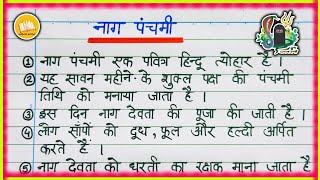 नाग पंचमी
① नाग पंचमी एक पवित्र हिन्दू त्योहार है ।
② यह सावन महीने के शुक्ल पक्ष की पंचमी
तिथि को मनाया जाता है ।
③ इस दिन नाग देवता की पूजा की जाती है ।
④ लोग साँपों को दूध, फूल और हल्दी अर्पित
करते हैं ।
⑤ नाग देवता को धरती का रक्षक माना जाता है